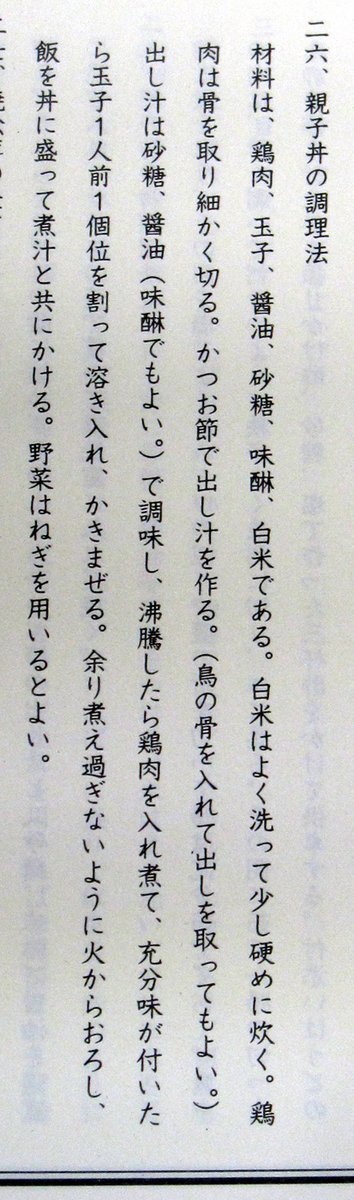 二六、親子丼の調理法
材料は、鶏肉、玉子、醤油、砂糖、味醂、白米である。白米はよく洗って少し硬めに炊く。鶏
肉は骨を取り細かく切る。かつお節で出し汁を作る。(鳥の骨を入れて出しを取ってもよい。)
出し汁は砂糖、醤油(味醂でもよい。)で調味し、沸騰したら鶏肉を入れ煮て、充分味が付いた
ら玉子1人前1個位を割って溶き入れ、かきまぜる。余り煮え過ぎないように火からおろし、
飯を丼に盛って煮汁と共にかける。野菜はねぎを用いるとよい。